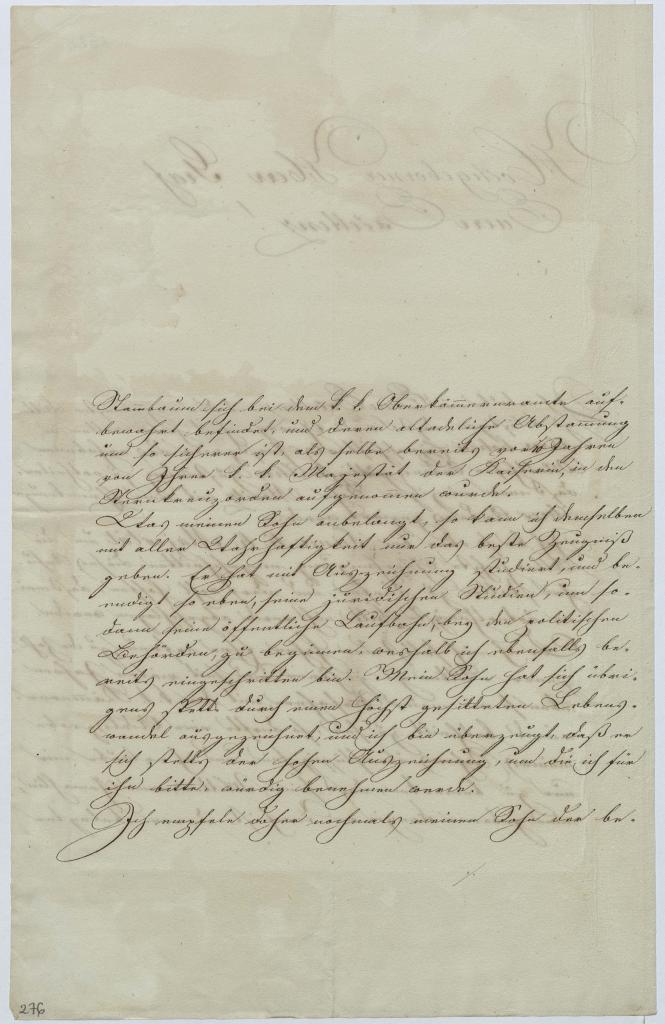 Stambaum sich bei dem k. k. Oberkämereramte auf-
bewahrt befindet, und deren altadeliche Abstamung
um so sicherer ist, als selbe bereits vor Jahren
von Ihrer k. k. Majestät der Kaiserin, in den
Sternkreuzorden aufgenomen wurde.
Was meinen Sohn anbelangt, so kann ich demselben
mit aller Wahrhaftigkeit nur das beste Zeugniß
geben. Er hat mit Auszeichnung studiert, und be-
endigt so eben, seine juridischen Studien, um so-
dann seine öffentliche Laufbahn, bey den politischen
Behörden, zu beginnen, weshalb ich ebenfalls be-
reits eingeschritten bin. Mein Sohn hat sich übri-
gens stetts durch einen höchst gesitteten Lebens-
wandel ausgezeichnet, und ich bin überzeugt, daß er
sich stetts der hohen Auszeichnung, um die ich für
ihn bitte, würdig benehmen werde.
Ich empfele daher nochmals meinen Sohn der be-
276